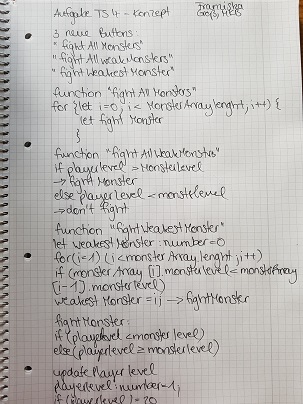 Aufgabe TS4 - Konzept
3 neue Buttons:
"fight All Monsters"
"fight All weak Monsters"
"fight Weakest Monster"
function "fight All Monsters"
for {let i=0, i < MonsterArray lenght, i++) {
let fight Monster
}
function "fight All Weak Monsters"
if playerlevel > Monsterlevel
→ fight Monster
else playerlevel < monsterlevel
→ don't fight
function "fight Weakest Monster"
let weakest Monster : number = 0
for(i=1) (i < monster Array lenght ; i++)
if (monster Array [i].monsterlevel < monsterArray
[i-1].monsterlevel)
weakest Monster = i; → fightMonster
fightMonster:
if (playerlevel < monster level)
else (playerlevel ≥ monsterlevel)
update Player level
playerlevel : number = 1,
if (playerlevel) = 20